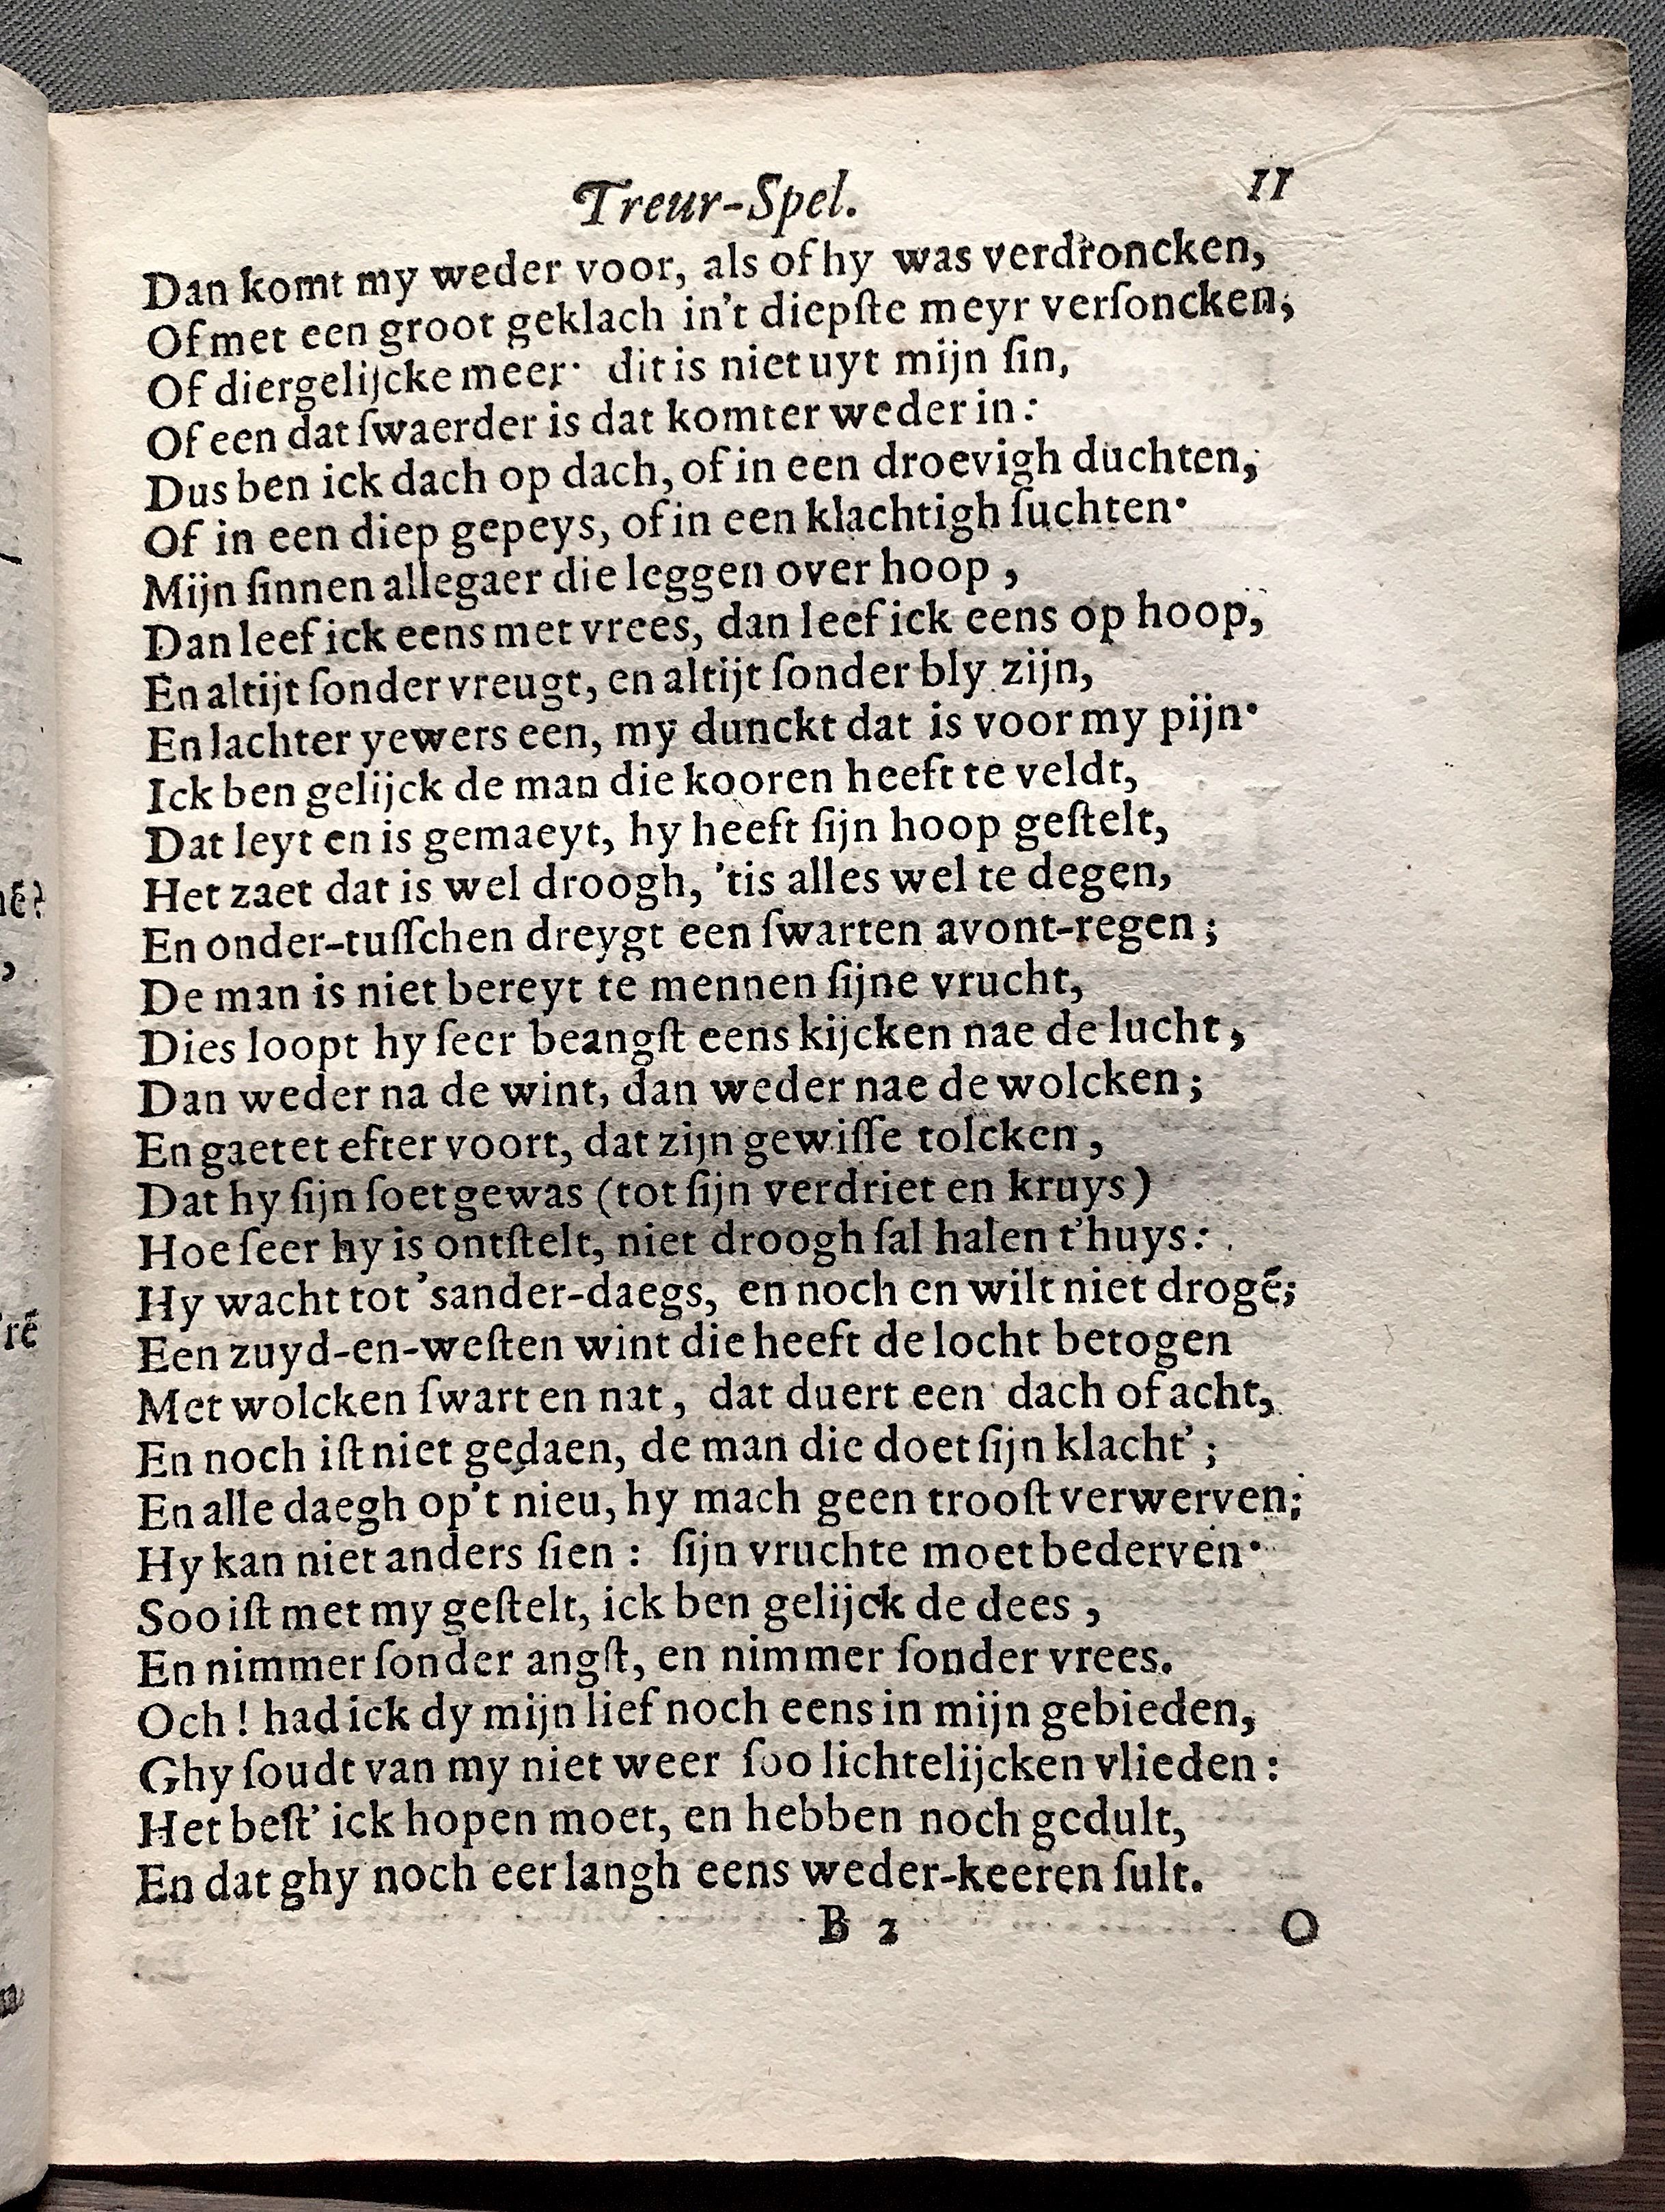 Treur-Spel. 11
Dan komt my weder voor, als of hy was verdroncken,
Of met een groot geklach in't diepſte meyr verſoncken;
Of diergelijcke meer· dit is niet uyt mijn ſin,
Of een dat ſwaerder is dat komter weder in:
Dus ben ick dach op dach, of in een droevigh duchten,
Of in een diep gepeys, of in een klachtigh ſuchten·
Mijn ſinnen allegaer die leggen over hoop,
Dan leef ick eens met vrees, dan leef ick eens op hoop,
En altijt ſonder vreugt, en altijt ſonder bly zijn,
En lachter yewers een, my dunckt dat is voor my pijn·
Ick ben gelijck de man die kooren heeft te veldt,
Dat leyt en is gemaeyt, hy heeft ſijn hoop geſtelt,
Het zaet dat is wel droogh, 'tis alles wel te degen,
En onder-tuſſchen dreygt een ſwarten avont-regen;
De man is niet bereyt te mennen ſijne vrucht,
Dies loopt hy ſeer beangſt eens kijcken nae de lucht,
Dan weder na de wint, dan weder nae de wolcken;
En gaetet efter voort, dat zijn gewiſſe tolcken,
Dat hy ſijn ſoet gewas (tot ſijn verdriet en kruys)
Hoe ſeer hy is ontſtelt, niet droogh ſal halen t'huys:
Hy wacht tot 'sander-daegs, en noch en wilt niet drogē;
Een zuyd-en-weſten wint die heeft de locht betogen
Met wolcken ſwart en nat, dat duert een dach of acht,
En noch iſt niet gedaen, de man die doet ſijn klacht';
En alle daegh op't nieu, hy mach geen trooſt verwerven;
Hy kan niet anders ſien: ſijn vruchte moet bederven·
Soo iſt met my geſtelt, ick ben gelijck de dees,
En nimmer ſonder angſt, en nimmer ſonder vrees.
Och! had ick dy mijn lief noch eens in mijn gebieden,
Ghy ſoudt van my niet weer ſoo lichtelijcken vlieden:
Het beſt' ick hopen moet, en hebben noch gedult,
En dat ghy noch eer langh eens weder-keeren ſult.
B 2 O